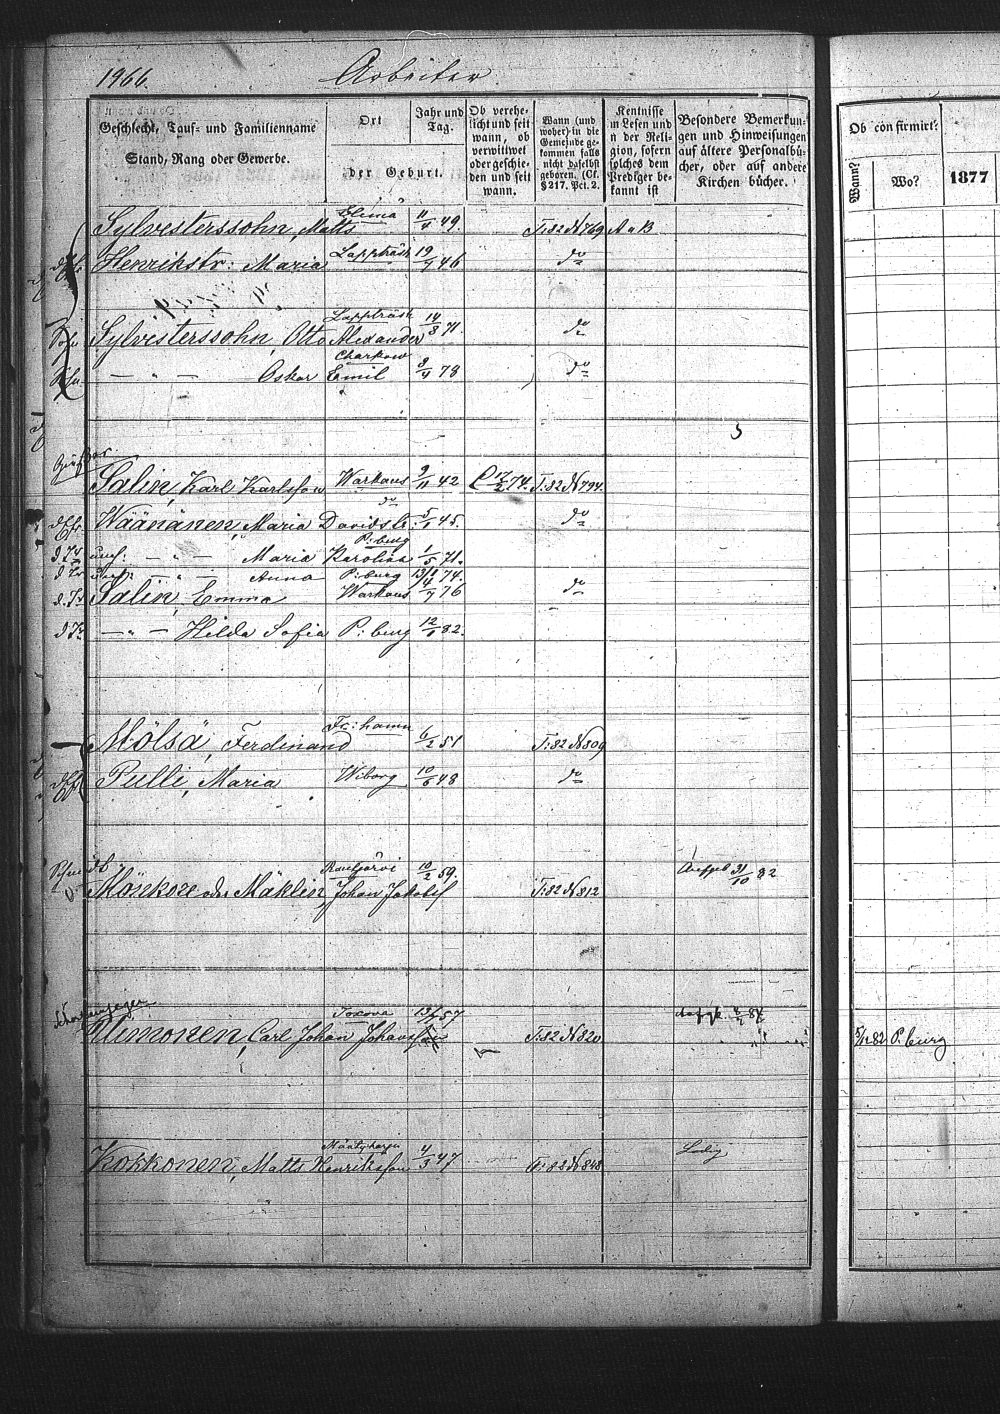 1966. Arbeiter
Geschlecht, Tauf- und Familienname
Stand, Rang oder Gewerbe.
Ort
der Geburt.
Jahr und
Tag.
Ob verehe-
licht und seit
wann, ob
verwittwet
oder geschie-
den und seit
wann.
Wann (und
woher) in die
Gemeinde ge-
kommen falls
nicht daselbst
geboren. (Cf.
§ 217. Pct. 2.
Kentnisse
in Lesen und
in der Reli-
gion, sofern
solches dem
Prediger be-
kannt ist
Besondere Bemerkun-
gen und Hinweisungen
auf ältere Personalbü-
cher, oder auf andere
Kirchen bücher.
Ob confirmirt?
Wann?
Wo?
1877
Sylvesterssohn, Matts Elimä 11/4 49. T:82 N 769 A u B
Henrikstr: Maria Lappträsk 19/7 46 do
Sylvesterssohn, Otto Alexander Lappträsk 14/3 71. do
— " — Oskar Emil Charkow 3/4 78 do
Salin, Karl Karlsson Warkaus 9/11 42 C 17/2 74. T:82 N 794.
Wäänänen, Maria Davidstr: do 5/1 45. do
unech: — " — Maria Karolina P:burg 1/5 71.
— " — Anna P:burg 74.
Salin, Emma Warkaus 4/7 76 do
— " — Hilda Sofia P:burg 12/1 82.
Mölsä, Ferdinand Fr:hamn 6/2 51 T:82 N 809
Pulli, Maria Wiborg 10/6 48 do
Mönkäre oder Mäklin, Johan Jakobss Rautjärvi 10/2 59. T:82 N 812 31/10 82
Ulmonen, Carl Johan Johansson 57 T:82 N 820 82 P:burg
Kokkonen, Matts Henriksson 4/3 47 T:82 N 848 Ledig